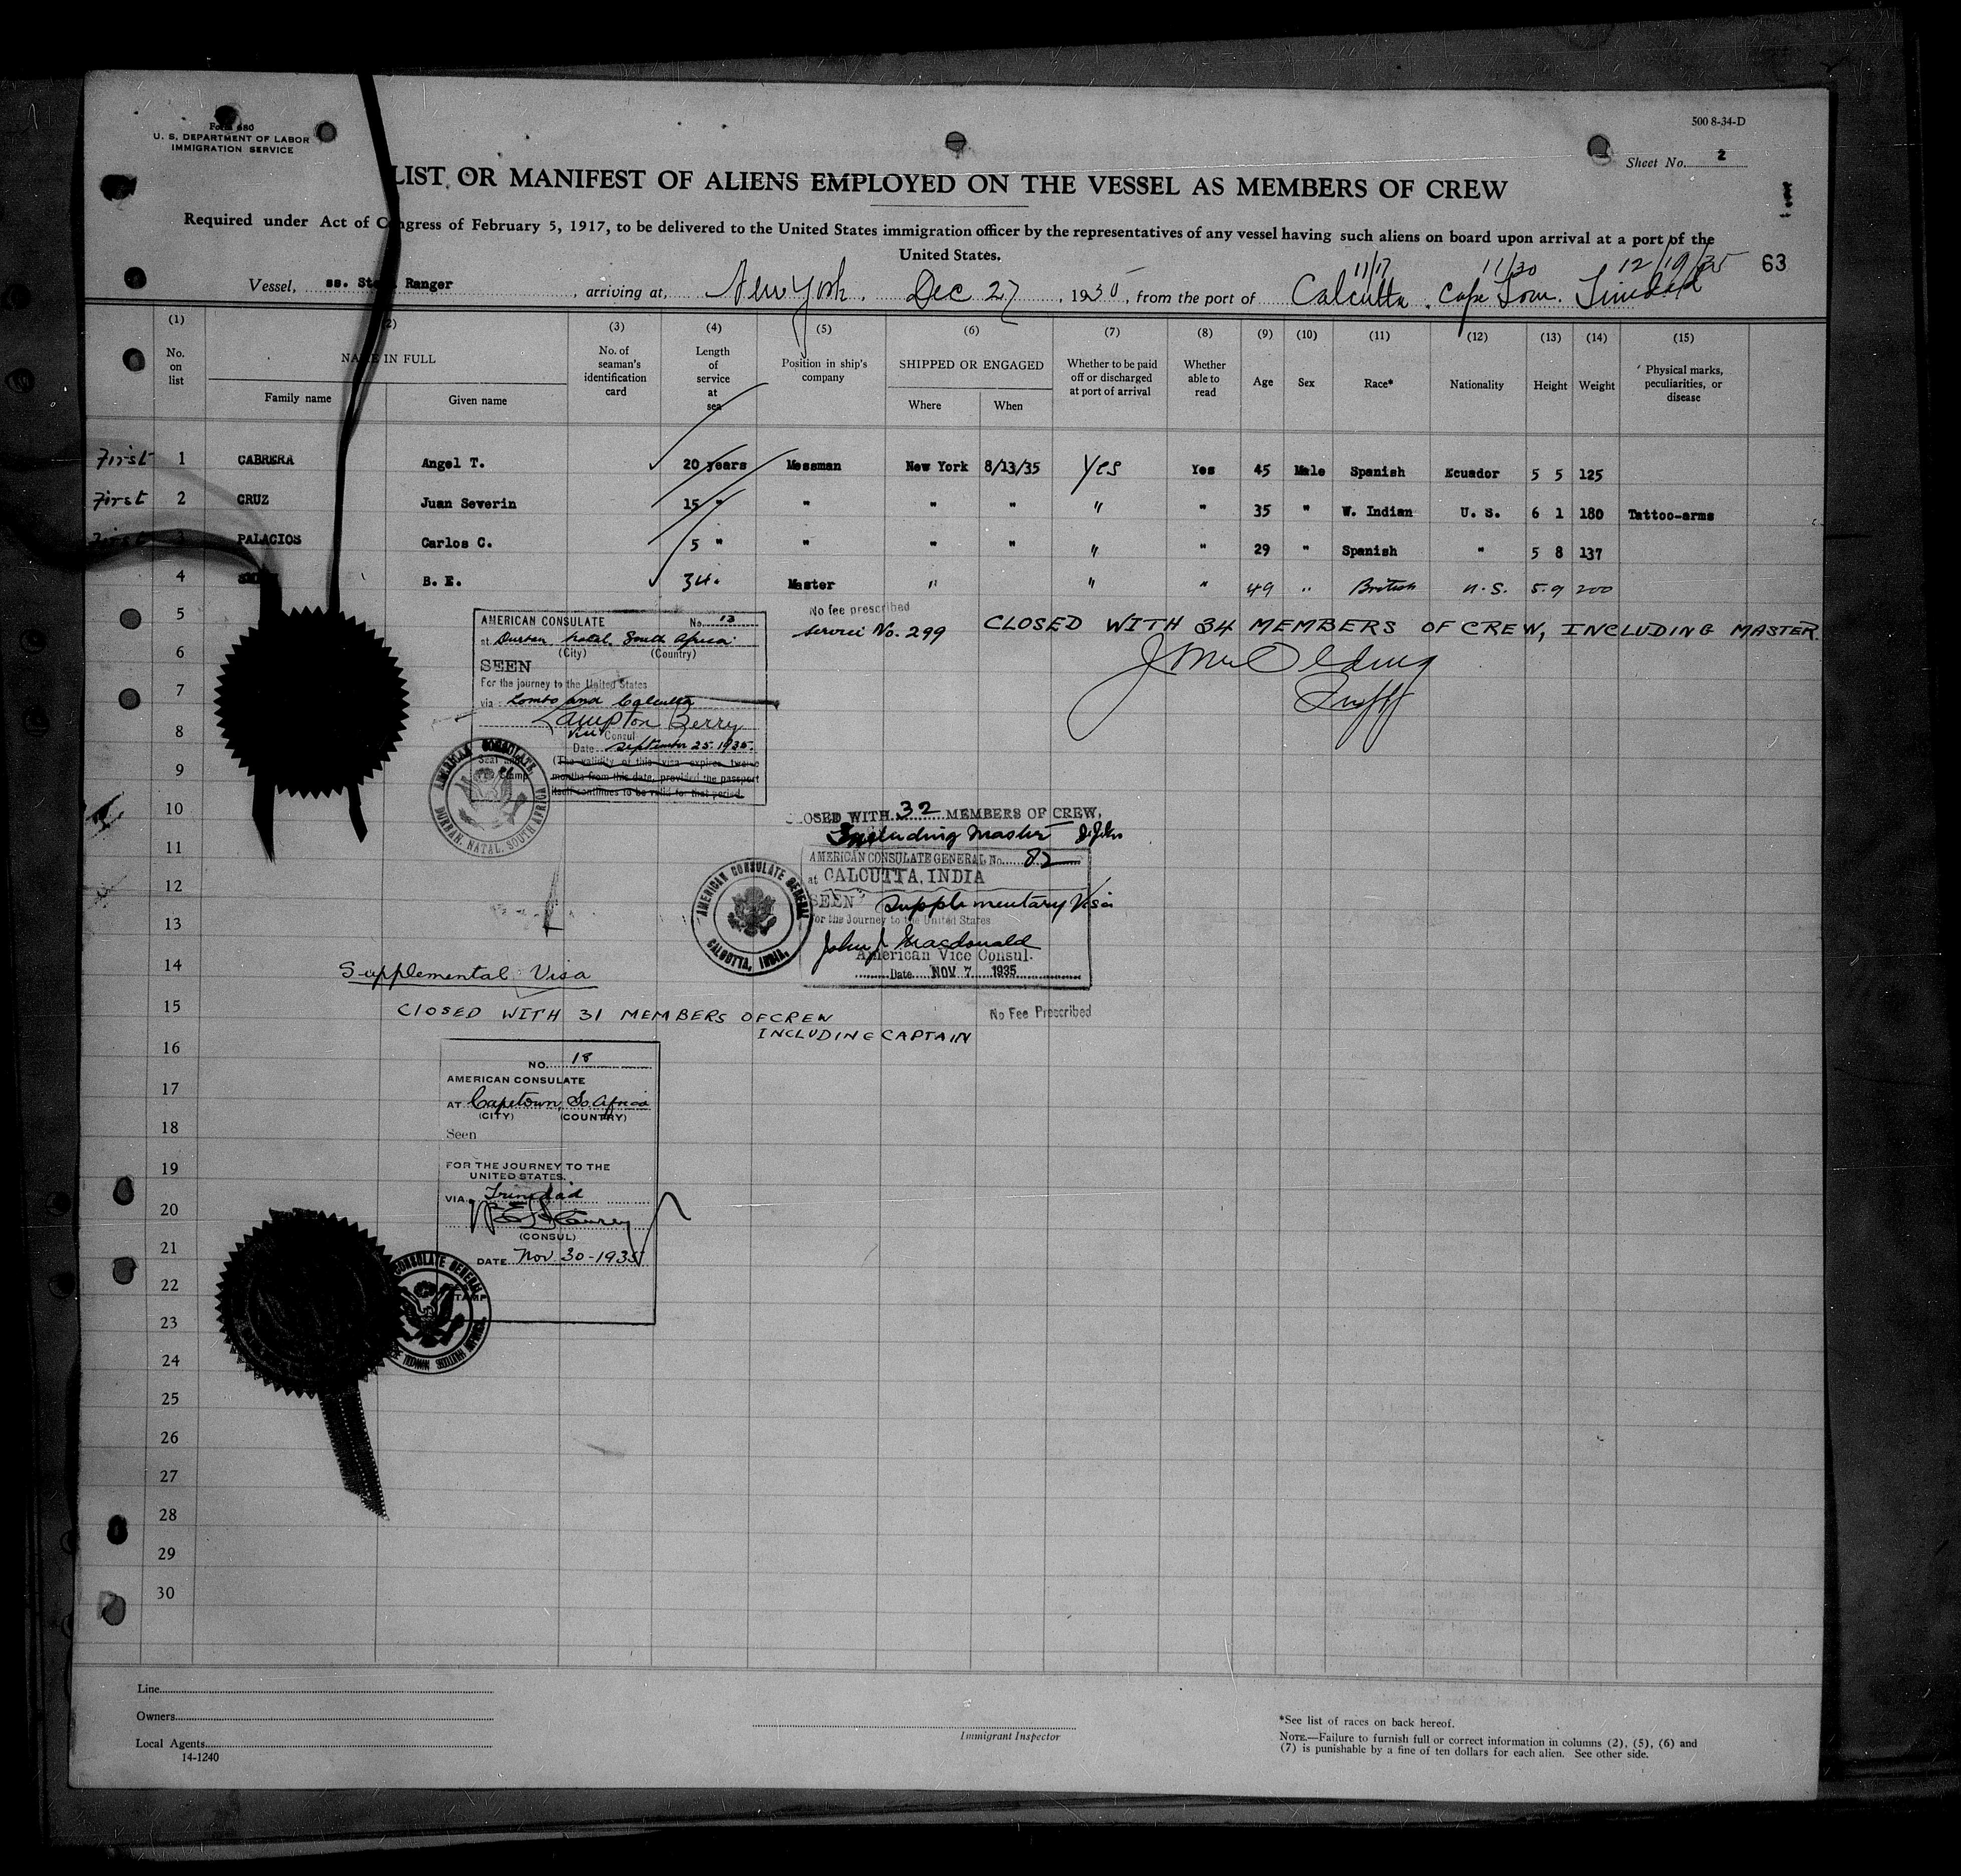 Form 680
U. S. DEPARTMENT OF LABOR
IMMIGRATION SERVICE
500 8-34-D
Sheet No. 2
LIST OR MANIFEST OF ALIENS EMPLOYED ON THE VESSEL AS MEMBERS OF CREW
Required under Act of Congress of February 5, 1917, to be delivered to the United States immigration officer by the representatives of any vessel having such aliens on board upon arrival at a port of the
United States.
63
11/17 11/30 12/19/35
Vessel, ss. Ranger, arriving at, New York. Dec 27, 193, from the port of Calcutta. Cape Town. Trinidad
(1) (2) (3) (4) (5) (6) (7) (8) (9) (10) (11) (12) (13) (14) (15)
No. on list
NAME IN FULL
Family name
Given name
No. of seaman's identification card
Length of service at sea
Position in ship's company
SHIPPED OR ENGAGED
Where
When
Whether to be paid off or discharged at port of arrival
Whether able to read
Age
Sex
Race*
Nationality
Height
Weight
Physical marks, peculiarities, or disease
First 1 CABRERA Angel T. 20 years Messman New York 8/13/35 Yes Yes 45 Male Spanish Ecuador 5 5 125
First 2 CRUZ Juan Severin 15 " " " " " " 35 " W. Indian U. S. 6 1 180 Tattoo-arms
First 3 PALACIOS Carlos C. 5 " " " " " " 29 " Spanish " 5 8 137
4 B. E. 34 " Master " " " 49 " British U.S. 5.9 200
5
6
7
8
9
10
11
12
13
14
15
16
17
18
19
20
21
22
23
24
25
26
27
28
29
30
No fee prescribed
Service No. 299
CLOSED WITH 34 MEMBERS OF CREW, INCLUDING MASTER.
AMERICAN CONSULATE No. 13
at Durban Natal, South Africa
(City) (Country)
SEEN
For the journey to the United States
via and Calcutta
Lampton Berry
Vice Consul
Date September 25, 1935.
(The validity of this visa expires twelve
months from this date, provided the passport
itself continues to be valid for that period.
AMERICAN CONSULATE
DURBAN, NATAL, SOUTH AFRICA
CLOSED WITH 32 MEMBERS OF CREW,
Including Master
AMERICAN CONSULATE GENERAL No. 82
at CALCUTTA, INDIA
SEEN Supplementary Visa
For the Journey to the United States
John J Macdonald
American Vice Consul.
Date NOV 7 1935
AMERICAN CONSULATE GENERAL
CALCUTTA, INDIA.
No Fee Prescribed
Supplemental Visa
CLOSED WITH 31 MEMBERS OF CREW
INCLUDING CAPTAIN
NO. 18
AMERICAN CONSULATE
AT Capetown, So. Africa
(CITY) (COUNTRY)
Seen
FOR THE JOURNEY TO THE
UNITED STATES.
VIA Trinidad
(CONSUL)
DATE Nov. 30-1935
CONSULATE GENERAL
Line
Owners
Local Agents
14-1240
Immigrant Inspector
*See list of races on back hereof.
NOTE.—Failure to furnish full or correct information in columns (2), (5), (6) and
(7) is punishable by a fine of ten dollars for each alien. See other side.